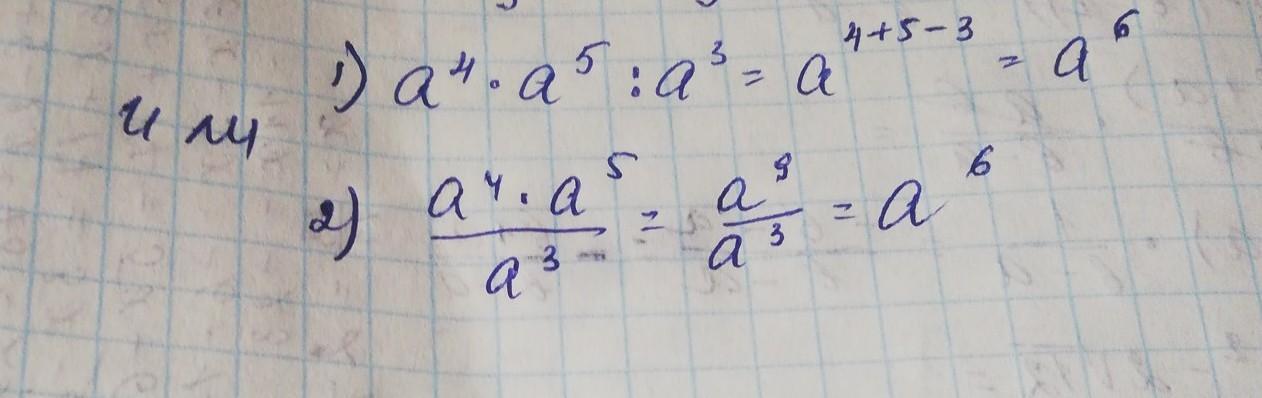 1) a⁴ · a⁵ : a³ = a⁴⁺⁵⁻³ = a⁶
или
2) \frac{a⁴ · a⁵}{a³} = \frac{a⁹}{a³} = a⁶